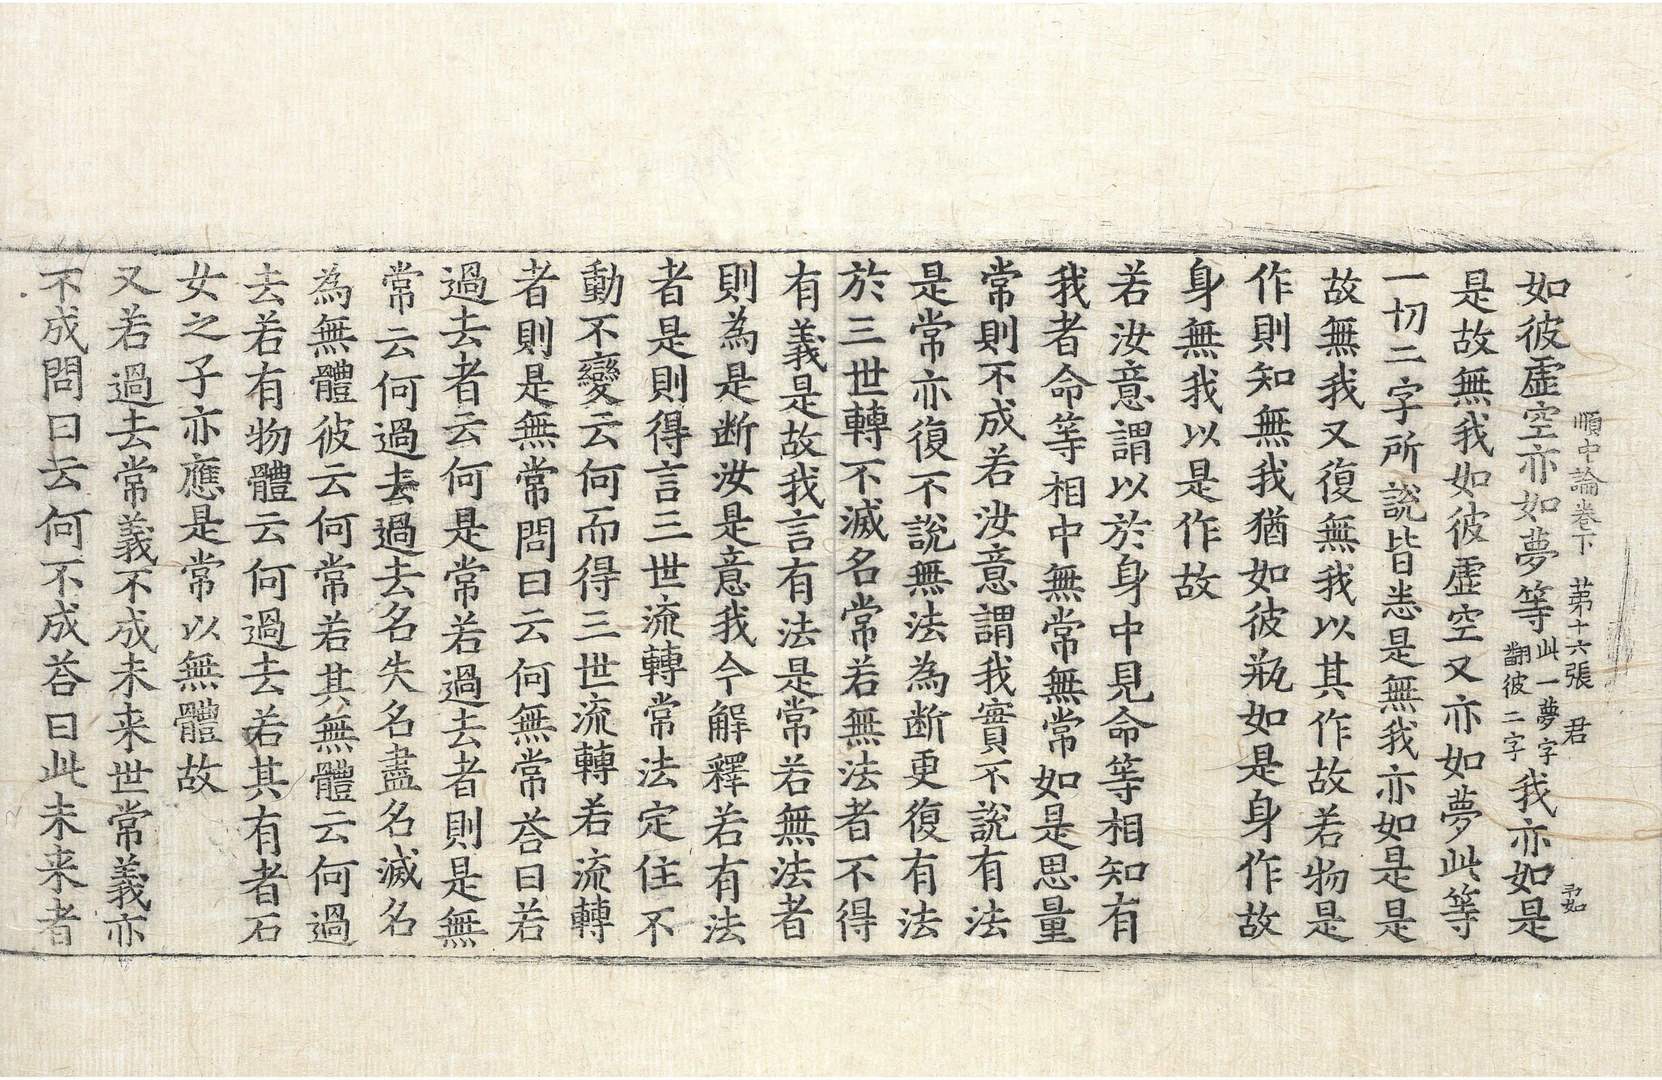 順中論卷下 苐十六張 君
如彼虛空亦如夢等此一夢字翻彼二字我亦如是
是故無我如彼虛空又亦如夢此等
一切二字所說皆悉是無我亦如是
故無我又復無我以其作故若物是
作則知無我猶如彼瓶如是身作故
身無我以是作故
若汝意謂以於身中見命等相知有
我者命等相中無常無常如是思量
常則不成若汝意謂我實不說有法
是常亦復不說無法為断更復有法
於三世轉不滅名常若無法者不得
有義是故我言有法是常若無法者
則為是断汝是意我今解釋若有法
者是則得言三世流轉常法定住不
動不變云何而得三世流轉若流轉
者則是無常問曰云何無常荅曰若
過去者云何是常若過去者則是無
常云何過去過去名失名盡名滅名
為無體彼云何常若其無體云何過
去若有物體云何過去若其有者石
女之子亦應是常以無體故
又若過去常義不成未来世常義亦
不成問曰云何不成荅曰此未来者